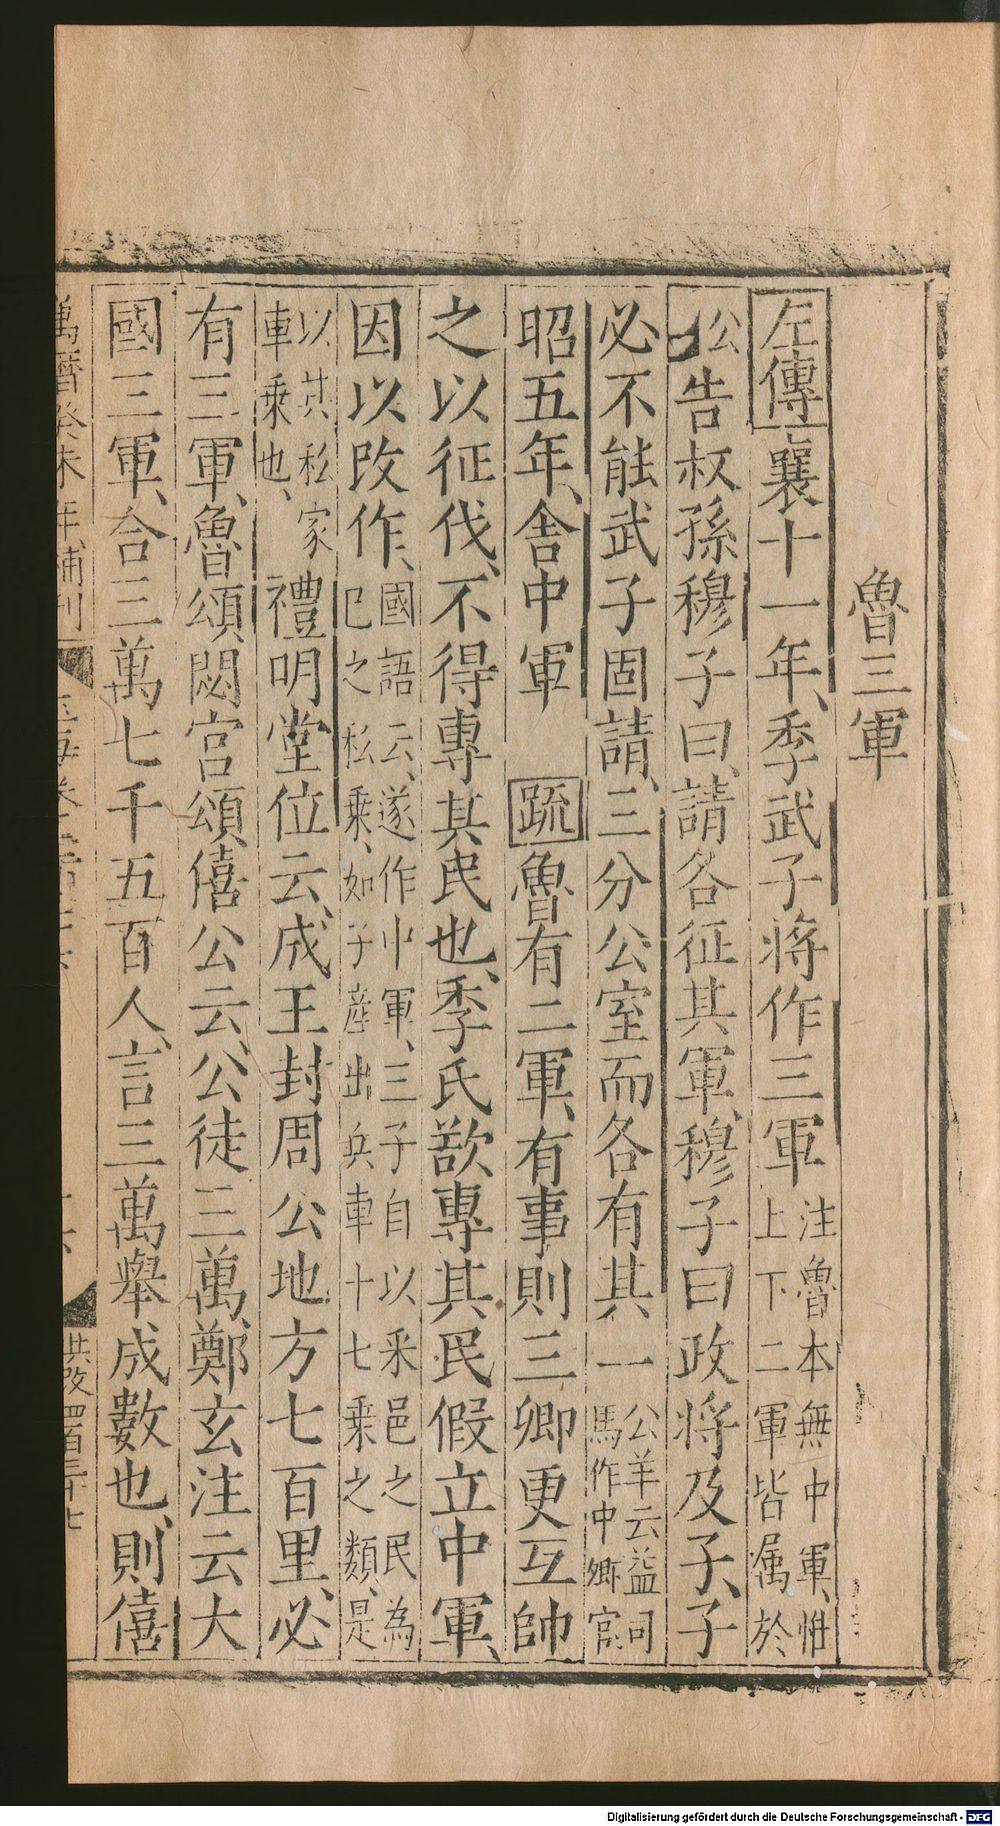 魯三軍
左傳襄十一年、季武子將作三軍注魯本無中軍、惟上下二軍皆属於
公告叔孫穆子曰、請各征其軍、穆子曰政將及子、子
必不能武子固請、三分公室而各有其一公羊云益司馬作中卿官
昭五年、舎中軍 疏魯有二軍、有事則三卿更互帥
之以征伐、不得專其民也、季氏欲專其民假立中軍、
因以改作、國語云、遂作中軍、三子自以采邑之民為已之私乗、如子産出兵車十七乗之類、是
以其私家車乗也、禮明堂位云、成王封周公地方七百里、必
有三軍、魯頌閟宫頌僖公云、公徒三萬、鄭玄注云大
國三軍、合三萬七千五百人、言三萬舉成數也、則僖
萬曆癸未年補刊
Digitalisierung gefördert durch die Deutsche Forschungsgemeinschaft - DFG